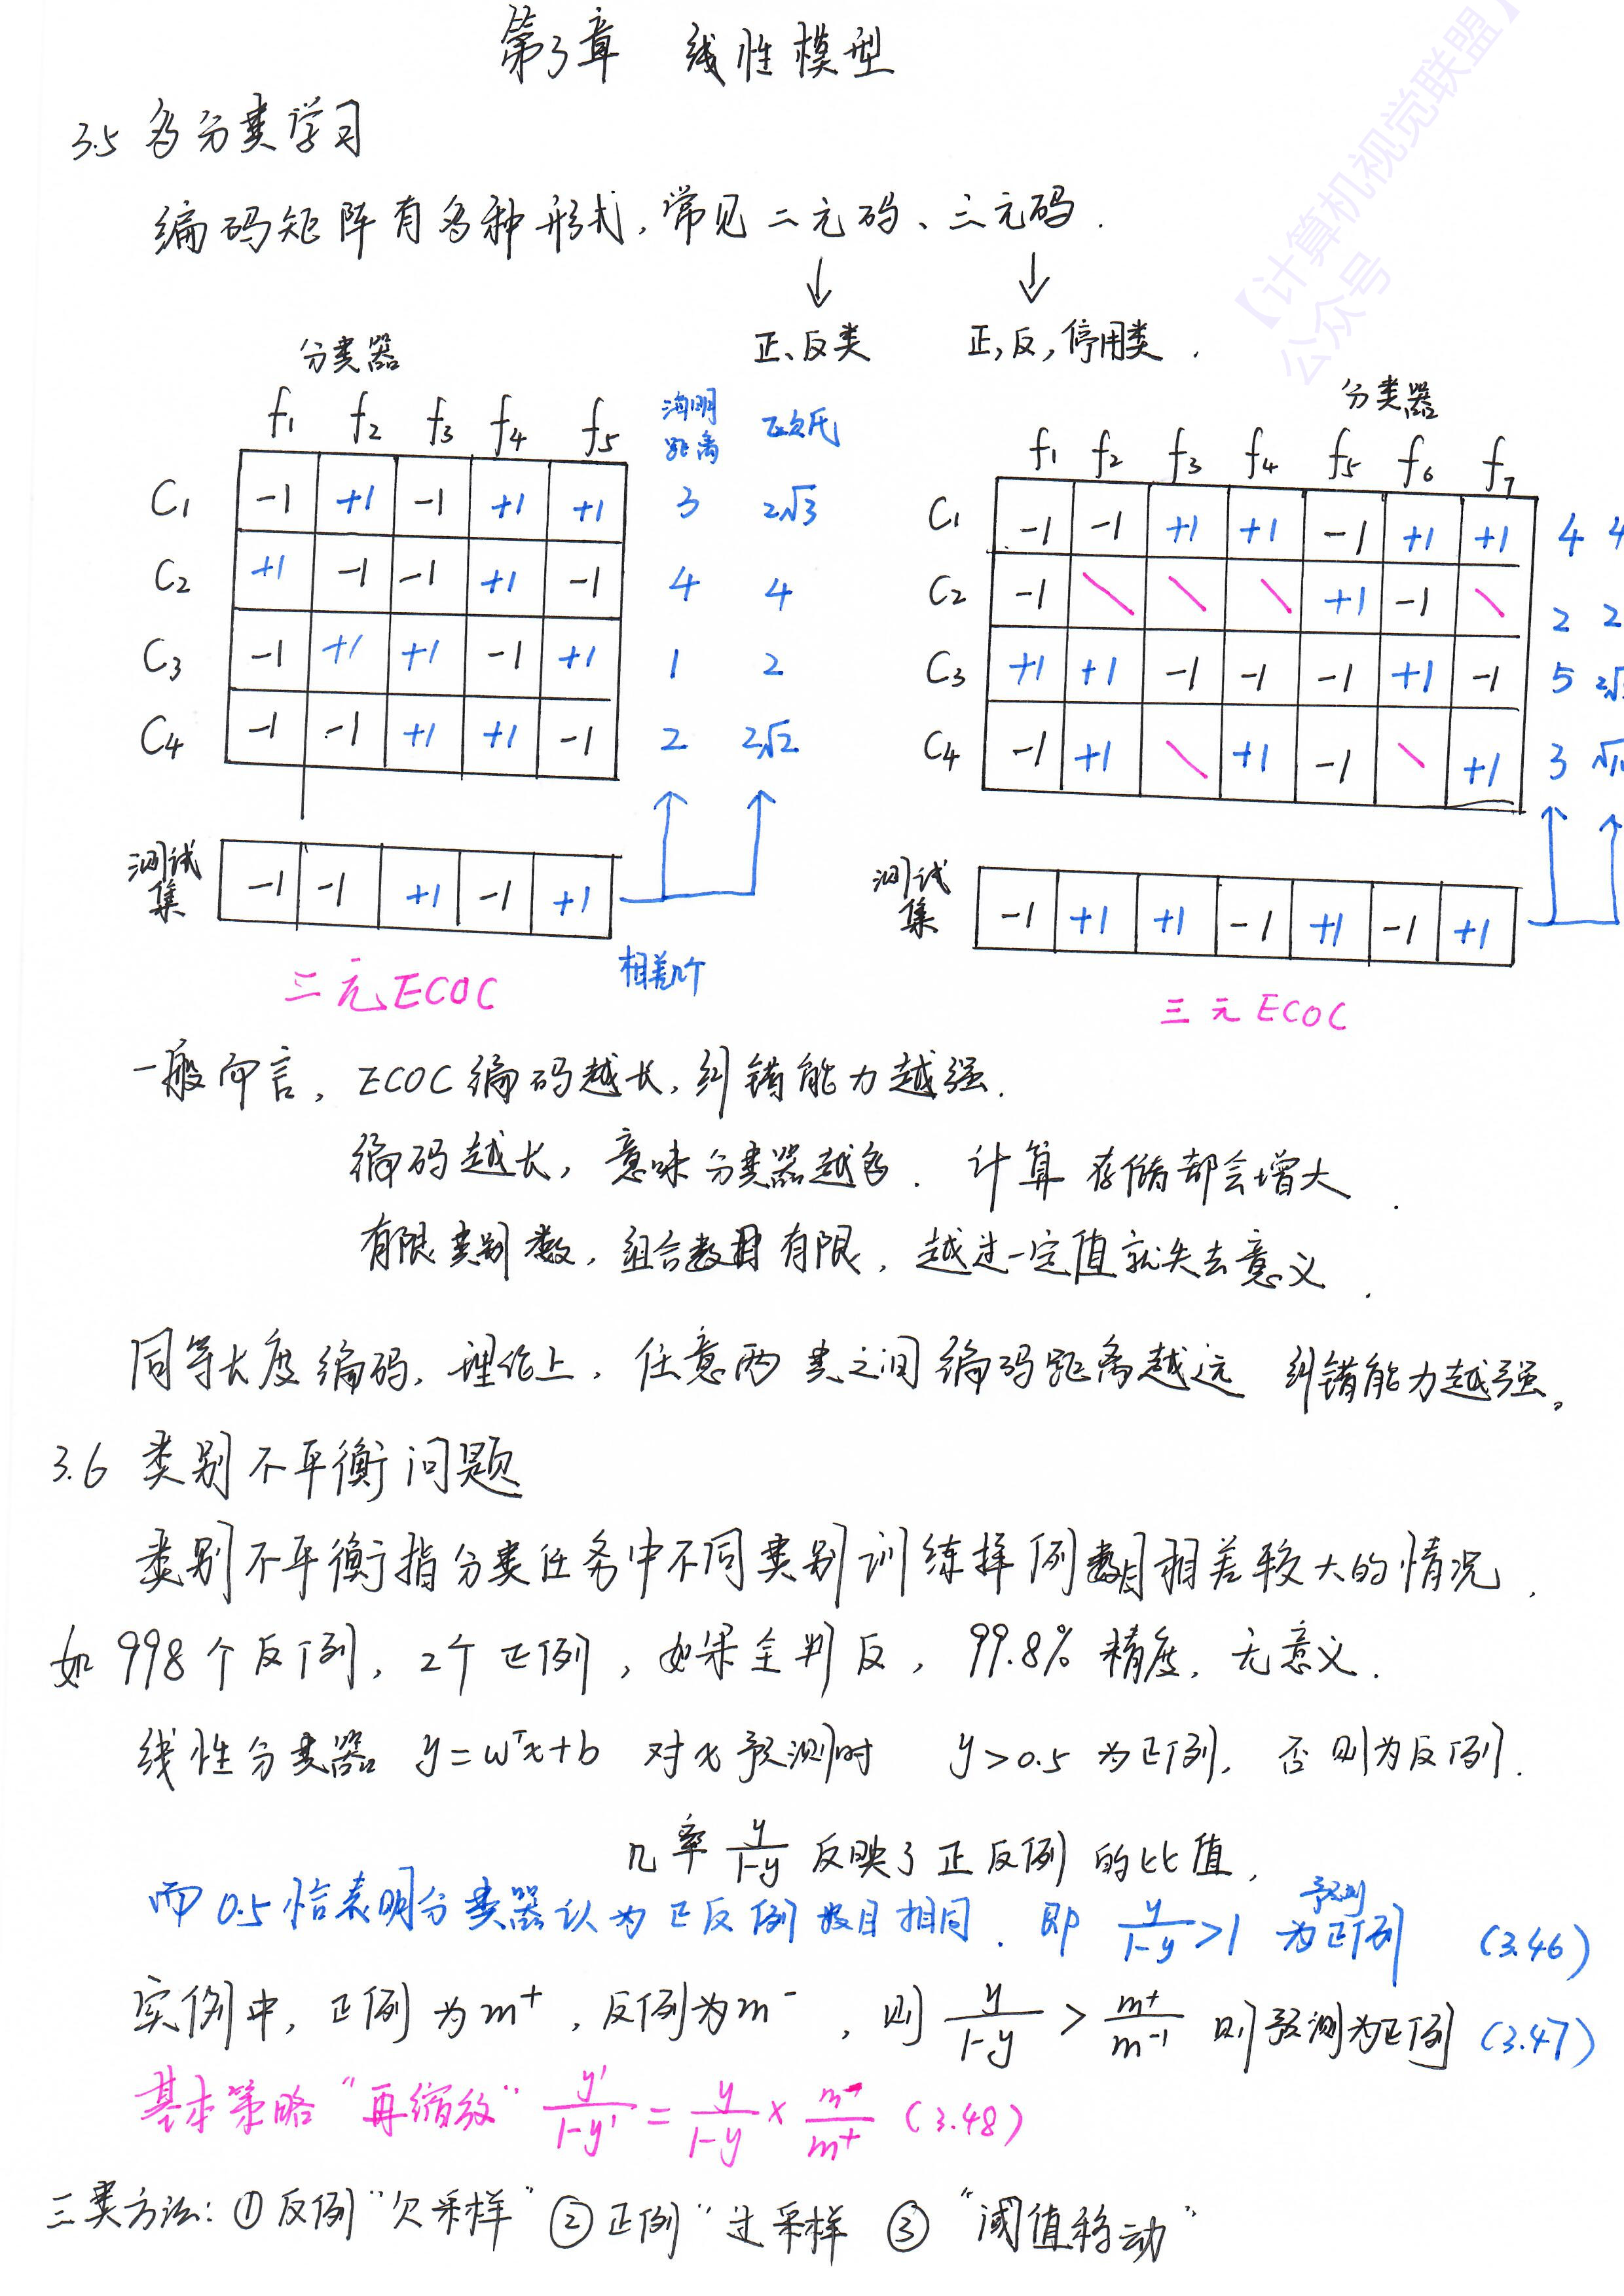 第3章 线性模型
3.5 多分类学习
编码矩阵有多种形式，常见二元码、三元码.
↓ ↓
正、反类 正,反,停用类.
分类器
f₁ f₂ f₃ f₄ f₅ 海明距离 欧氏
C₁ -1 +1 -1 +1 +1 3 2√3
C₂ +1 -1 -1 +1 -1 4 4
C₃ -1 +1 +1 -1 +1 1 2
C₄ -1 -1 +1 +1 -1 2 2√2
测试集 -1 -1 +1 -1 +1
相差几个
二元ECOC
分类器
f₁ f₂ f₃ f₄ f₅ f₆ f₇
C₁ -1 -1 +1 +1 -1 +1 +1 4 4
C₂ -1 \ \ \ +1 -1 \ 2 2
C₃ +1 +1 -1 -1 -1 +1 -1 5 2√
C₄ -1 +1 \ +1 -1 \ +1 3 √1
测试集 -1 +1 +1 -1 +1 -1 +1
三元ECOC
一般而言，ECOC编码越长，纠错能力越强.
编码越长，意味分类器越多. 计算存储都会增大.
有限类别数，组合数目有限，越过一定值就失去意义.
同等长度编码，理论上，任意两类之间编码距离越远 纠错能力越强。
3.6 类别不平衡问题
类别不平衡指分类任务中不同类别训练样例数目相差较大的情况.
如 998个反例，2个正例，如果全判反，99.8%精度，无意义.
线性分类器 y=wᵀx+b 对x预测时 y>0.5 为正例，否则为反例.
几率 y/(1-y) 反映了正反例的比值,
而0.5恰表明分类器认为正反例数目相同. 即 y/(1-y)>1 预测为正例 (3.46)
实例中，正例为m⁺，反例为m⁻，则 y/(1-y) > m⁺/m⁻¹ 则预测为正例 (3.47)
基本策略“再缩放” y'/(1-y') = y/(1-y) × m⁻/m⁺ (3.48)
三类方法：①反例“欠采样” ②正例“过采样 ③“阈值移动”
【计算机视觉联盟】
公众号